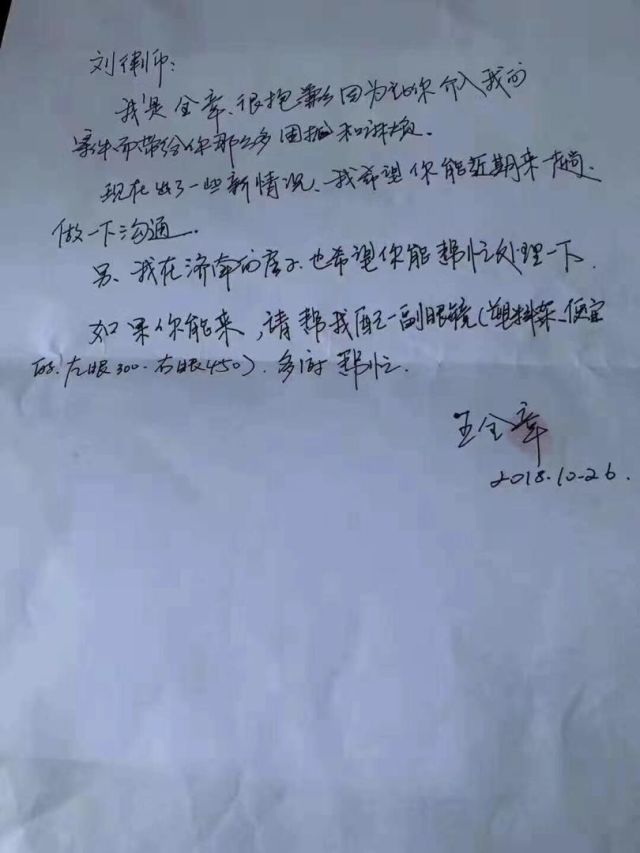 刘律师:
我是全章、很抱歉因为让你介入我的
案件而带给你那么多困扰和麻烦.
现在出了一些新情况、我希望你能近期来一趟.
做一下沟通.
另、我在济南的房子.也希望你能帮忙处理一下.
如果你能来,请帮我配一副眼镜(塑料架、便宜
的.左眼300.右眼450).多谢帮忙.
王全章
2018.10.26.